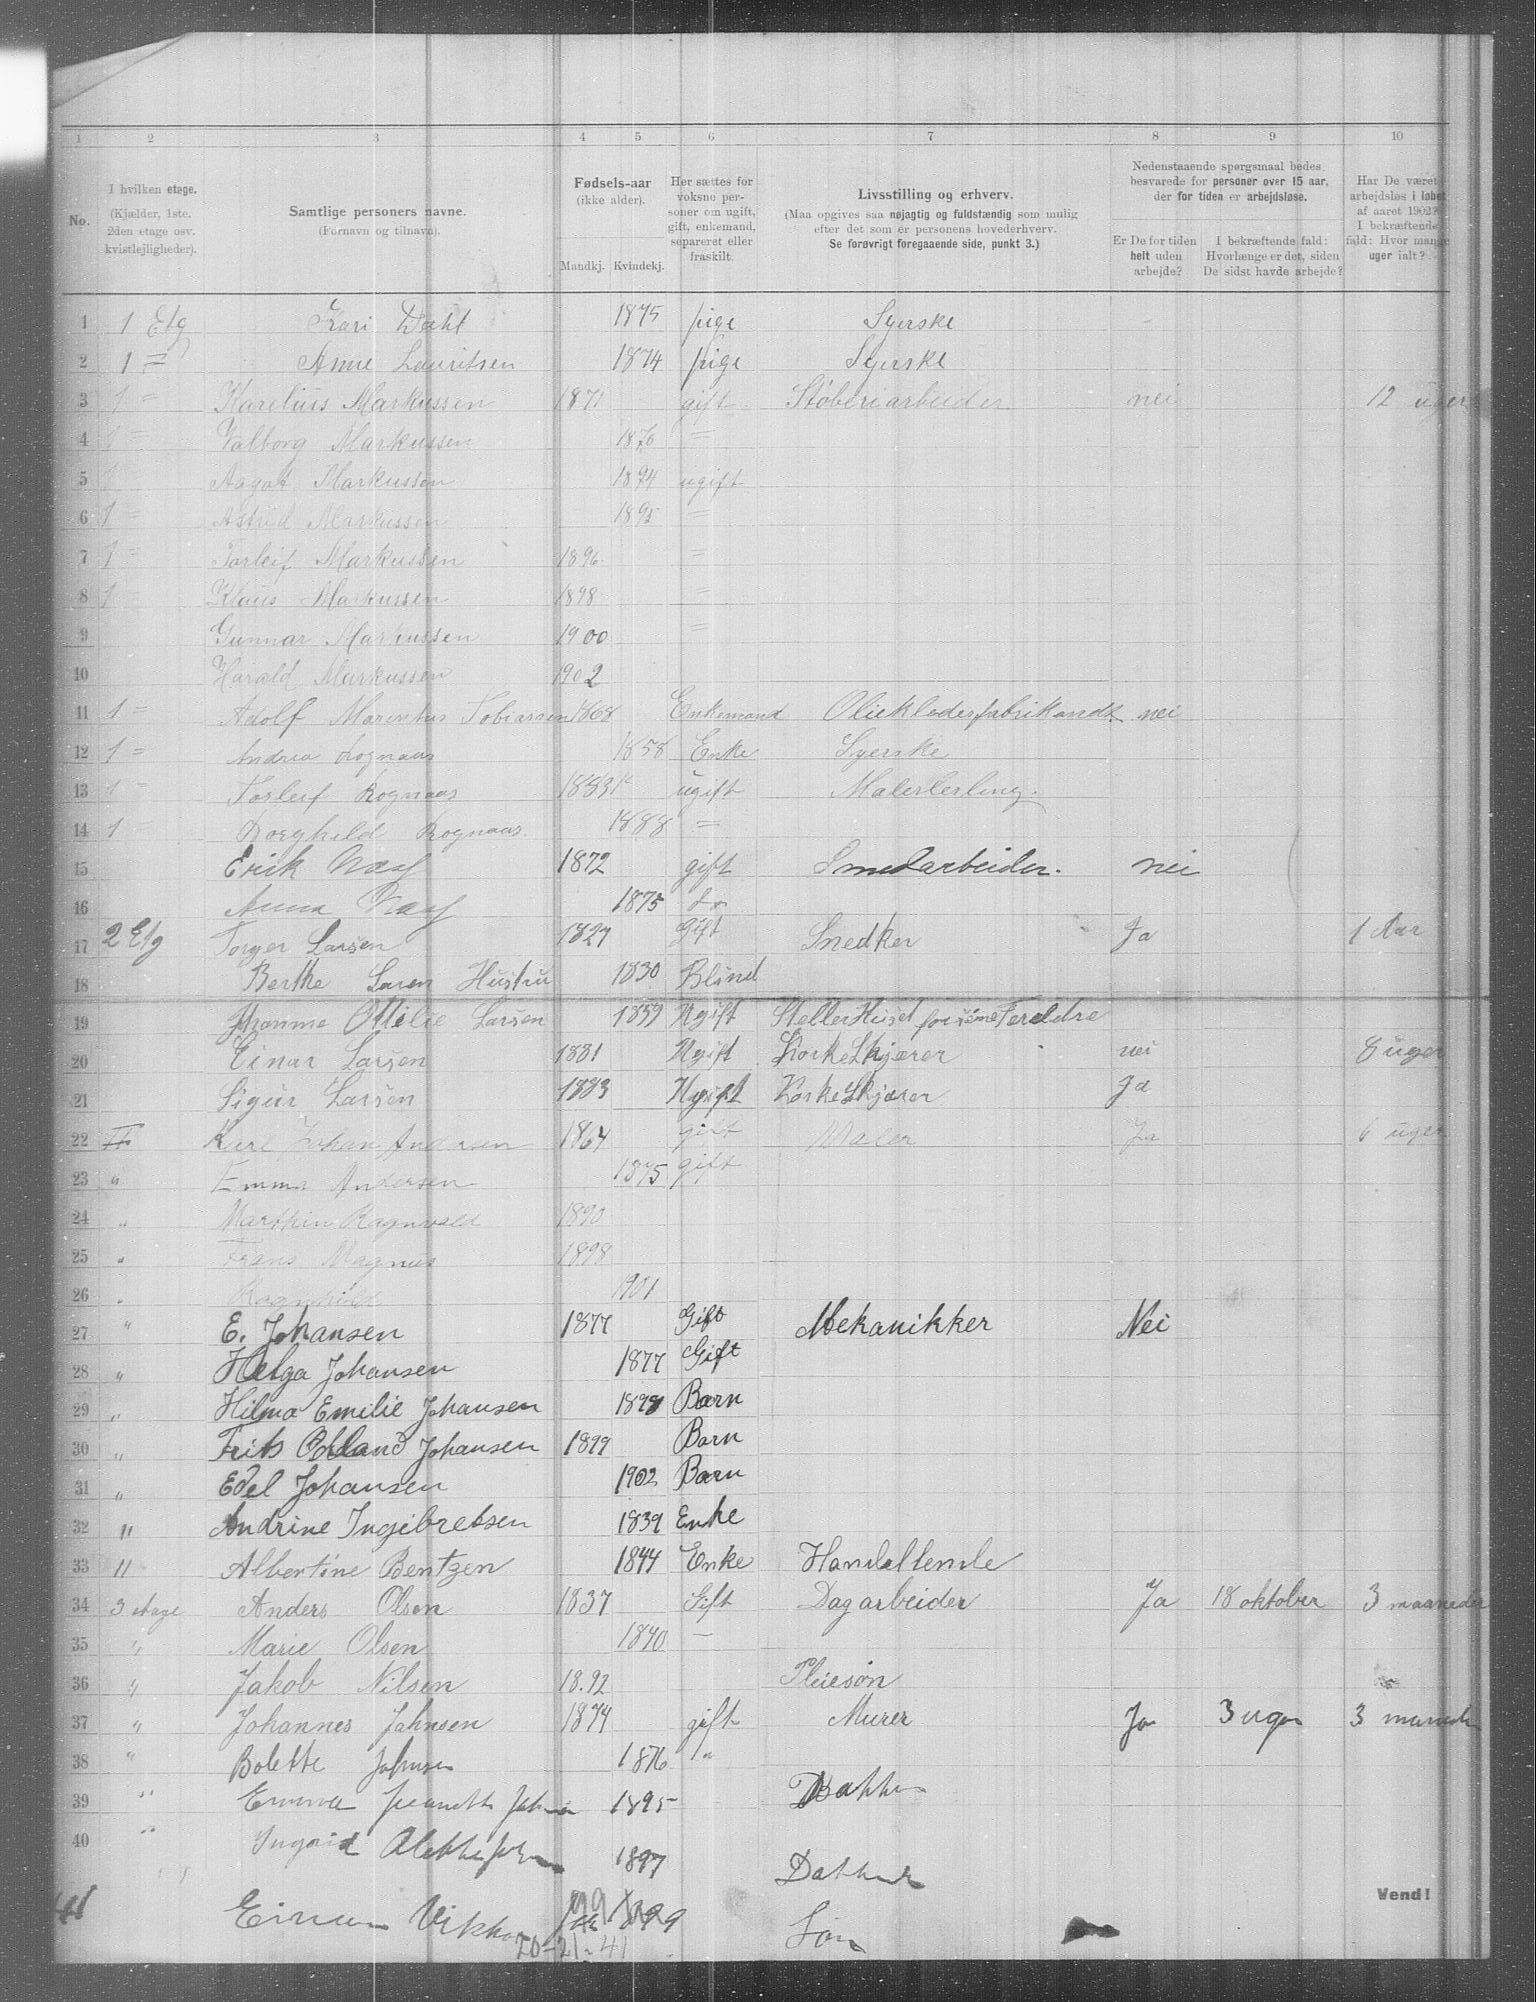 1 2 3 4 5 6 7 8 9 10
No.
I hvilken etage.
(Kjælder, 1ste.
2den etage osv.
kvistlejligheder).
Samtlige personers navne.
(Fornavn og tilnavn).
Fødsels-aar
(ikke alder).
Mandkj. Kvindekj.
Her sættes for
voksne per-
soner om ugift,
gift, enkemand,
separeret eller
fraskilt.
Livsstilling og erhverv.
(Maa opgives saa nøjagtig og fuldstændig som mulig
efter det som er personens hovederhverv.
Se forøvrigt foregaaende side, punkt 3.)
Nedenstaaende spørgsmaal bedes
besvarede for personer over 15 aar,
der for tiden er arbejdsløse.
Er De for tiden
helt uden
arbejde?
I bekræftende fald:
Hvorlænge er det, siden
De sidst havde arbejde?
Har De været
arbejdsløs i løbet
af aaret 1902?
I bekræftende
fald: Hvor mange
uger ialt?
1 1 Etg Kari Dahl 1875 pige Syerske
2 1 = Anne Lauritsen 1874 pige Syerske
3 1 = Karelius Markussen 1871 gift Støberiarbeider nei 12 uger
4 1 = Valborg Markussen 1876 =
5 1 Aagot Markussen 1894 ugift
6 1 = Astrid Markussen 1895 =
7 1 = Torleif Markussen 1896 =
8 1 = Klaus Markussen 1898 =
9 Gunnar Markussen 1900 =
10 Harald Markussen 1902
11 1 = Adolf Marentius Tobiassen 1868 Enkemand Oliekladesfabrikandt nei
12 1 = Andrea Rognaas 1858 Enke Syerske
13 1 = Torleif Rognaas 1883 ugift Malerlerling.
14 1 = Borghild Rognaas 1888 =
15 Erik Næss 1872 gift Smedarbeider. nei
16 Anna Næss 1875 do
17 2 Etg Torger Larsen 1827 Gift Snedker Ja 1 Aar
18 Berthe Laren Hustru 1830 Blind
19 Hanna Ottilie Larsen 1859 Ugift Steller Huset for sine Foreldre
20 Einar Larsen 1881 Ugift Korkeskjærer nei 8 uger
21 Sigur Larsen 1883 Ugift Korkeskjærer Ja
22 II Karl Johan Andersen 1864 gift Maler Ja 6 uger
23 " Emma Andersen 1875 gift
24 " Marthin Ragnvald 1890
25 " Frans Magnus 1898
26 " Ragnhild 1901
27 " E. Johansen 1877 Gift Mekanikker Nei
28 " Helga Johansen 1877 Gift
29 " Hilma Emilie Johansen 1898 Barn
30 " Frits Orland Johansen 1899 Barn
31 " Edel Johansen 1902 Barn
32 " Andrine Ingebretsen 1839 Enke
33 " Albertine Bentzen 1844 Enke Handallende
34 3 etage Anders Olsen 1837 Gift Dagarbeider Ja 18 oktober 3 maaneder
35 " Marie Olsen 1840 —
36 " Jakob Nilsen 18.92 Pleiesøn
37 " Johannes Jahnsen 1874 gift Murer Ja 3 uger 3 maaneder
38 " Bolette Jahnsen 1876 "
39 " Emma 1895 Datter
40 " Ingrid 1897 Datter
41 Einar Viktor 1899 Søn
20-21-41
Vend!